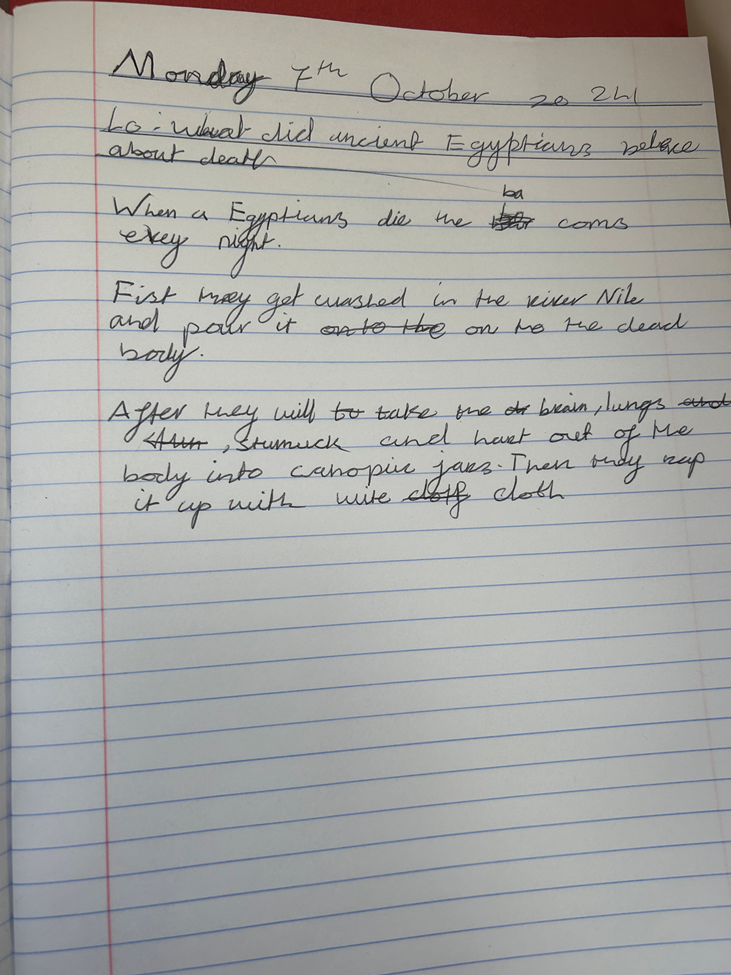 Monday 7th October 2024
Lo: what did ancient Egyptians beleve
about death
ba
When a Egyptians die the coms
evey night.
Fist they get washed in the river Nile
and pour it on to the on to the dead
body.
After they will to take the dr brain, lungs and
, stumuck and hart out of the
body into canopic jars. Then they rap
it up with wite cloth